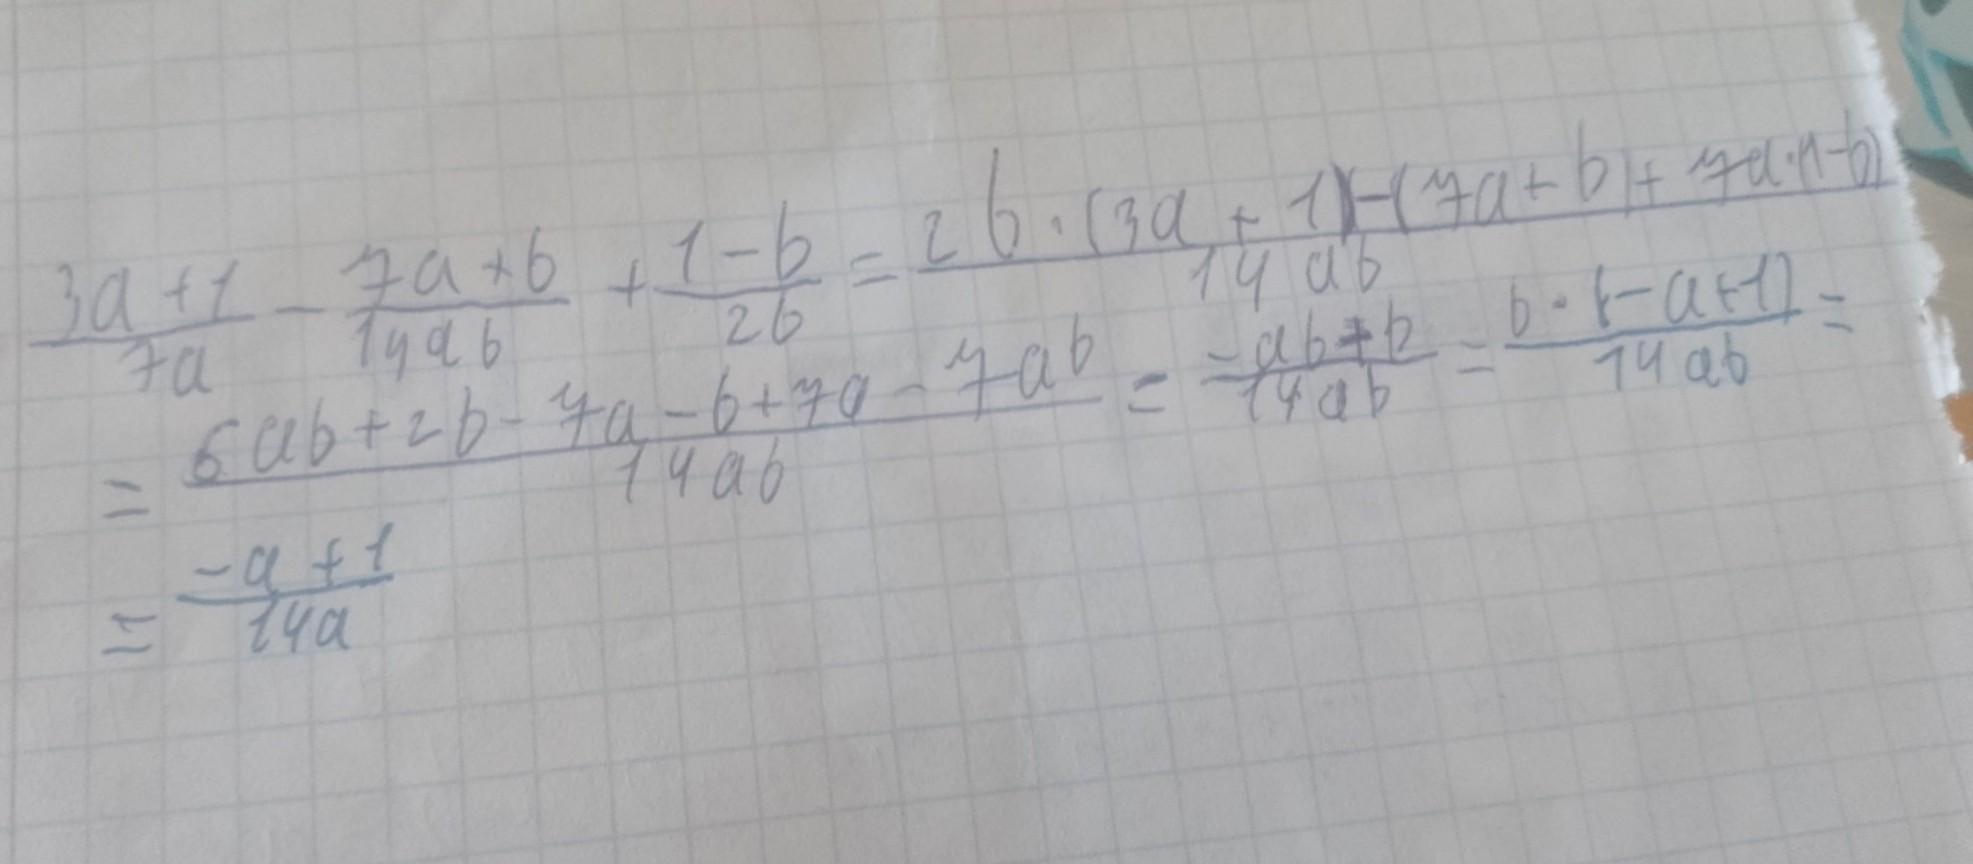 (3a+1)/(7a) - (7a+b)/(14ab) + (1-b)/(2b) = (2b·(3a+1)-(7a+b)+7a·(1-b))/(14ab)
= (6ab+2b-7a-b+7a-7ab)/(14ab) = (-ab+b)/(14ab) = (b·(-a+1))/(14ab) =
= (-a+1)/(14a)